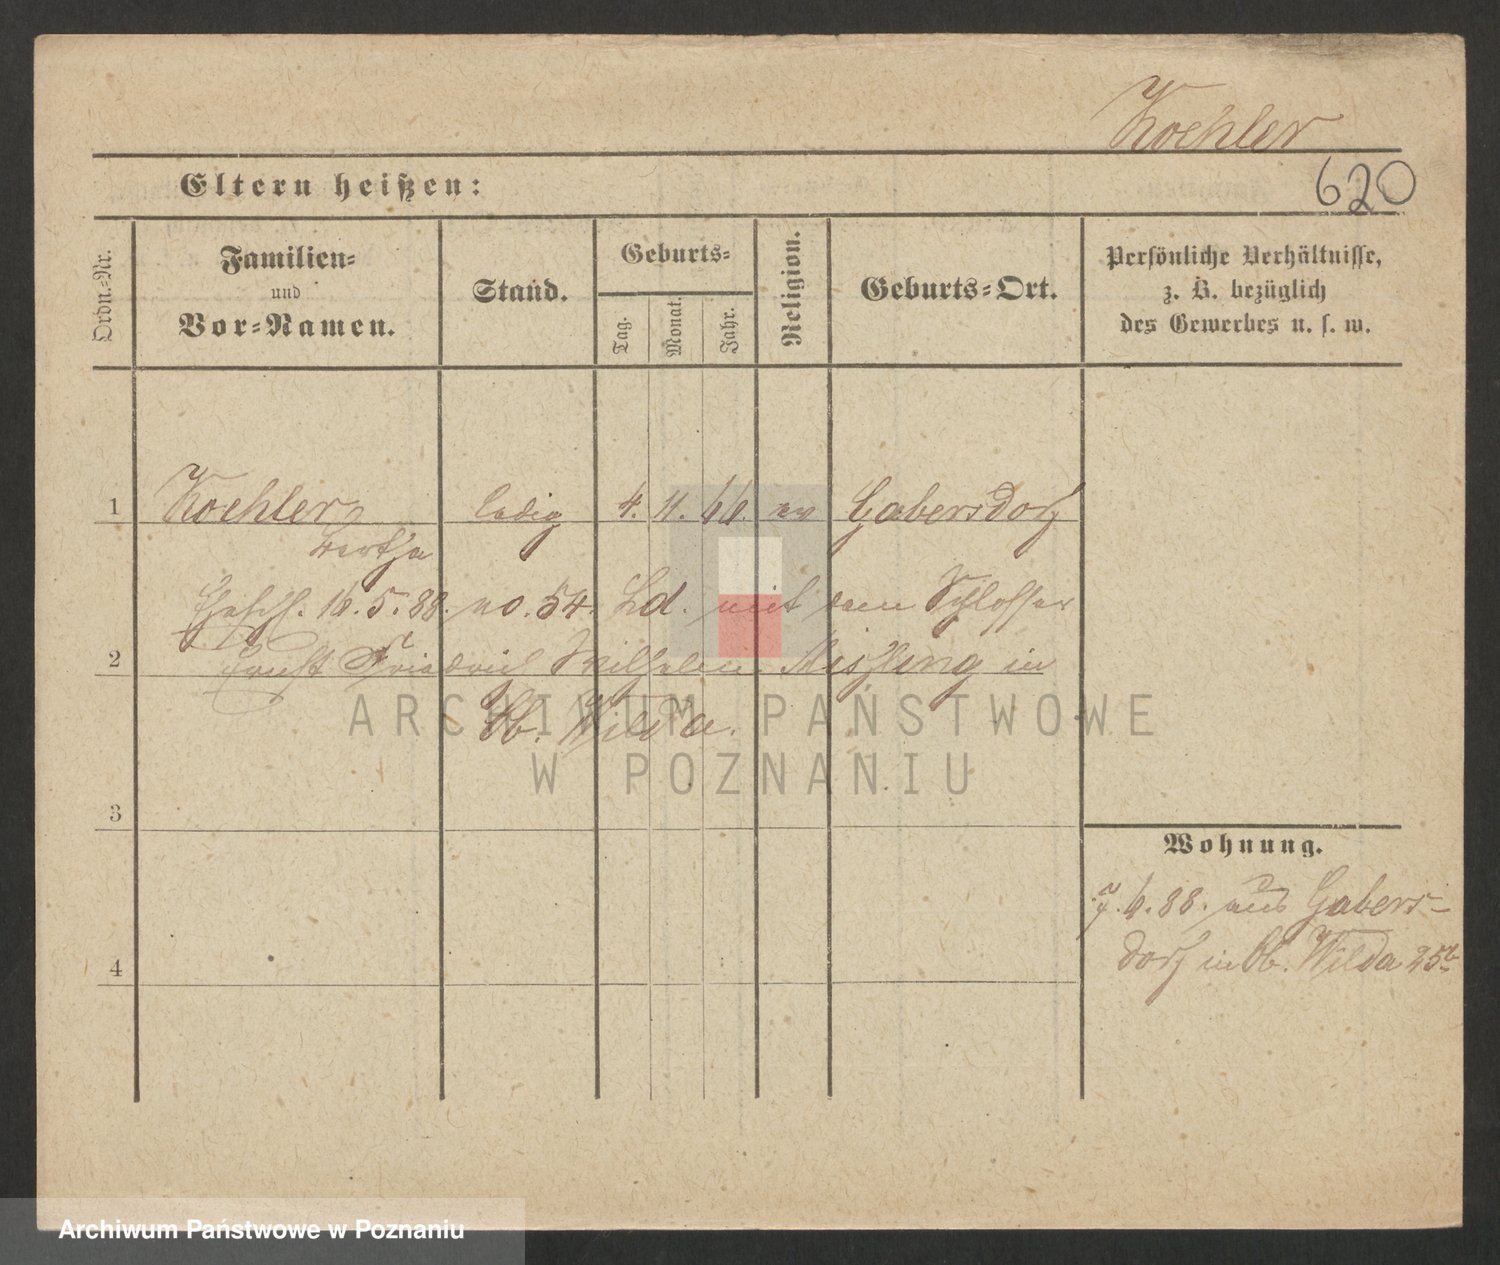 Koehler
Eltern heißen:
620
Ordn.-Nr.
Familien-
und
Vor-Namen.
Stand.
Geburts-
Tag.
Monat.
Jahr.
Religion.
Geburts-Ort.
Persönliche Verhältnisse,
z. B. bezüglich
des Gewerbes u. s. w.
1 Koehler ledig 4. 11. 66. ev Gabersdorf
Bertha
Ehesch. 16. 5. 88. no. 54. Ld. mit dem Schlosser
2 Ernst Friedrich Wilhelm in
Ob. Wilda.
3
Wohnung.
7. 6. 88. aus Gabers-
dorf in Ob. Wilda 25b
4
ARCHIWUM PAŃSTWOWE
W POZNANIU
Archiwum Państwowe w Poznaniu